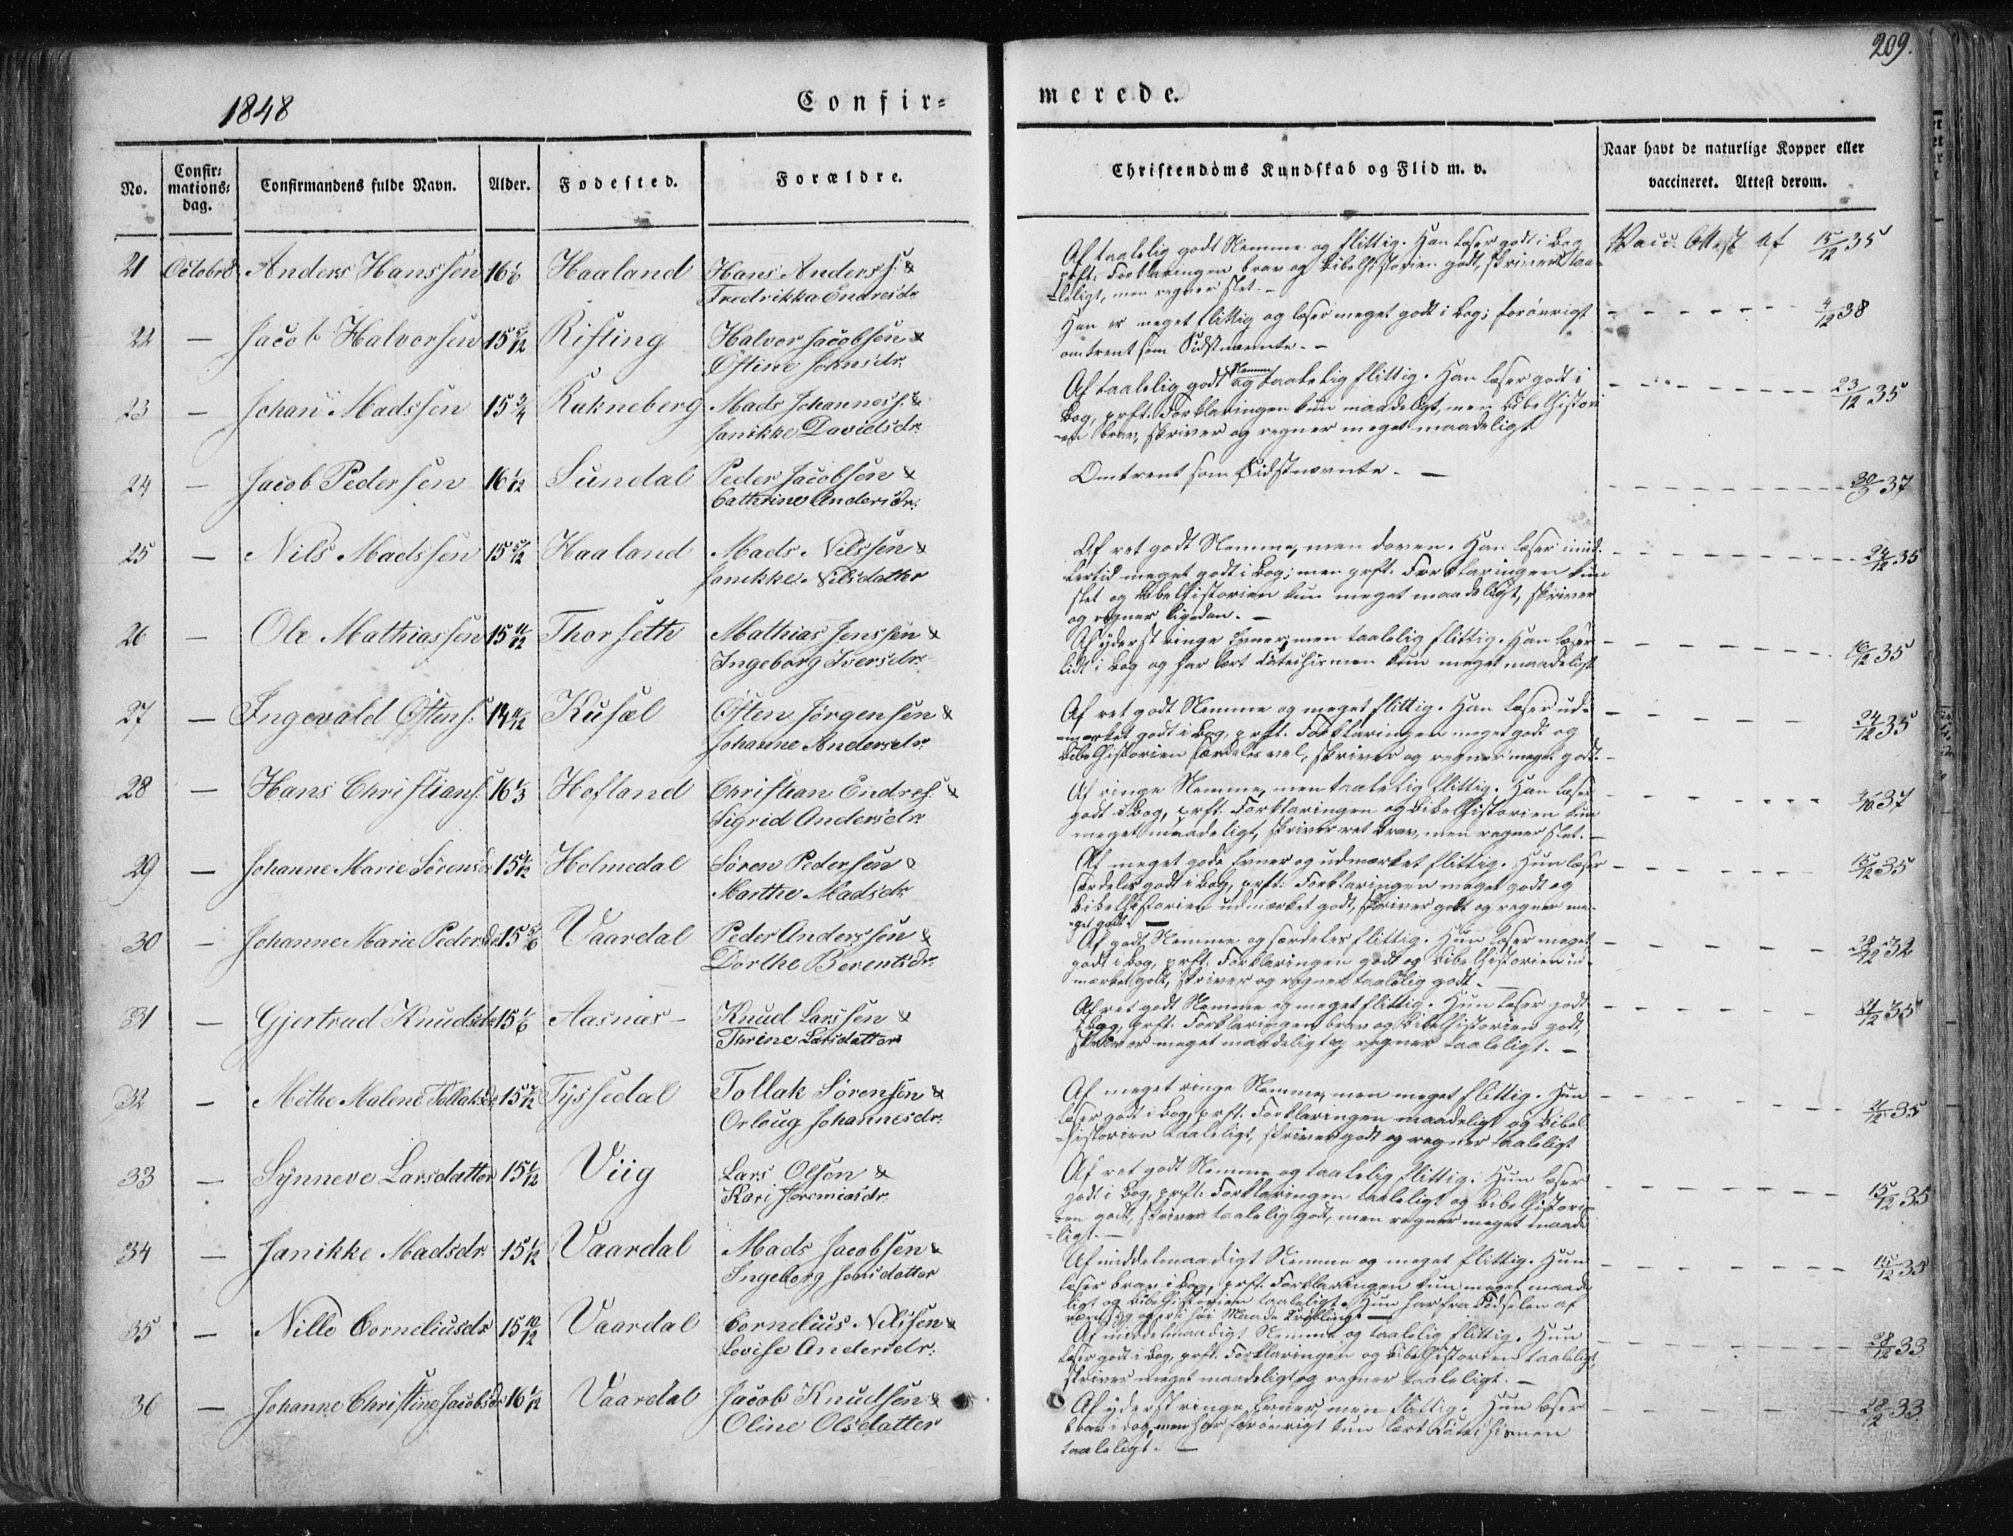 209.
1848
Confir=
merede.
No.
Confir=
mations=
dag.
Confirmandens fulde Navn.
Alder.
Fødested.
Forældre.
Christendoms Kundskab og Flid m. v.
Naar havt de naturlige Kopper eller
vaccineret. Attest derom.
21 October 8 Anders Hanssen 16 1/6 Haaland Hans Anderss. &
Fredrikka Endresdr
Af taalelig godt Nemme og flittig. Han læser godt i Bog,
prst. Forklaringen brav og Bibelhistorien godt, skriver taa-
leligt, men regner slet. –
Vacc. Attest af 15/12 35
22 — Jacob Halvorsen 15 5/12 Rifting Halvor Jacobsen &
Østine Johnsdr.
Han er meget flittig og læser meget godt i Bog; forøvrigt
omtrent som Sidstnævnte. –
4/12 38
23 — Johan Madssen 15 3/4 Kakneberg Mads Johanness. &
Janikke Davidsdr.
Af taalelig godt Nemme og taalelig flittig. Han læser godt i
Bog, prst. Forklaringen kun maadeligt, men Bibelhistori
en brav, skriver og regner meget maadeligt
23/12 35
24 — Jacob Pedersen 16 1/12 Sundal Peder Jacobsen &
Catherine Andersdr.
Omtrent som Sidstnævnte. —
37
25 — Nils Madssen 15 5/12 Haaland Mads Nilssen &
Janikke Nilsdatter
Af ret godt Nemme, men doven. Han læser imid-
lertid meget godt i Bog; men prst. Forklaringen kun
slet og Bibelhistorien kun meget maadeligt, skriver
og regner ligedan. –
24/12 35
26 — Ole Mathiassen 15 11/12 Thorseth Mathias Jenssen &
Ingeborg Iversdr.
Af yderst ringe Evner, men taalelig flittig. Han læser
lidt i Bog og har lært Catechismen kun meget maadeligt
16/12 35
27 — Ingevald Østens. 14 Kusæl Østen Jørgensen &
Johanne Andersdr.
Af ret godt Nemme og meget flittig. Han læser ud-
mærket godt i Bog, prst. Forklaringen meget godt og
Bibelhistorien særdeles vel, skriver og regner meget godt.
24/12 35
28 — Hans Christians. 16 1/3 Hofland Christian Endres. &
Sigrid Andersdr.
Af ringe Nemme, men taalelig flittig. Han læser
godt i Bog, prst. Forklaringen og Bibelhistorien kun
meget maadeligt, skriver ret brav, men regner slet. –
37
29 — Johanne Marie Sørensd 15 1/12 Holmedal Søren Pedersen &
Marthe Madsdr.
Af meget gode Evner og udmærket flittig. Hun læser
særdeles godt i Bog, prst. Forklaringen meget godt og
Bibelhistorien udmærket godt, skriver godt og regner me-
get godt. —
15/12 35
30 — Johanne Marie Pedersdr 15 5/6 Vaardal Peder Anderssen &
Dorthe Berentsdr.
Af godt Nemme og særdeles flittig. Hun læser meget
godt i Bog, prst. Forklaringen godt og Bibelhistorien ud-
mærket godt, skriver og regner taalelig godt.
32
31 — Gjertrud Knudsdr 15 1/6 Aasnæs – Knud Larssen &
Thrine Larsdatter
Af ret godt Nemme og meget flittig. Hun læser godt
i Bog, prst. Forklaringen brav og Bibelhistorien godt,
skriver meget maadeligt og regner taaleligt. –
21/12 35
32 — Methe Malene Tollaksdr 15 7/12 Tyssedal Tollak Sørensen &
Orloug Johannesdr.
Af meget ringe Nemme, men meget flittig. Hun
læser godt i Bog, prst. Forklaringen maadeligt og Bibel-
historien taaleligt, skriver godt og regner taaleligt
21/12 35
33 — Synneve Larsdatter 15 1/12 Viig Lars Olsen &
Kari Jeremiasdr.
Af ret godt Nemme og taalelig flittig. Hun læser
godt i Bog, prst. Forklaringen taaleligt og Bibelhistori-
en godt, skriver taalelig godt, men regner meget maade
ligt. –
15/12 35
34 — Janikke Madsdr 15 1/12 Vaardal Mads Jacobsen &
Ingeborg Jonsdatter
Af middelmaadigt Nemme og meget flittig. Hun
læser brav i Bog, prst. Forklaringen kun meget maade
ligt og Bibelhistorien taaleligt. Hun har fra Fødselen af
været i høi Maade
15/12 35
35 — Nille Corneliusdr 15 10/12 Vaardal Cornelius Nilssen &
Lovise Andersdr.
Af middelmaadigt Nemme og taalelig flittig. Hun
læser godt i Bog, prst. Forklaringen og Bibelhistorien taaleligt,
skriver meget maadeligt og regner taaleligt. –
28/12 33
36 — Johanne Christine Jacobsdr 16 1/12 Vaardal Jacob Knudsen &
Oline Olsdatter
Af yderst ringe Evner, men flittig. Hun læser
brav i Bog, men har forøvrigt kun lært Catechismen
taaleligt. –
28/2 33